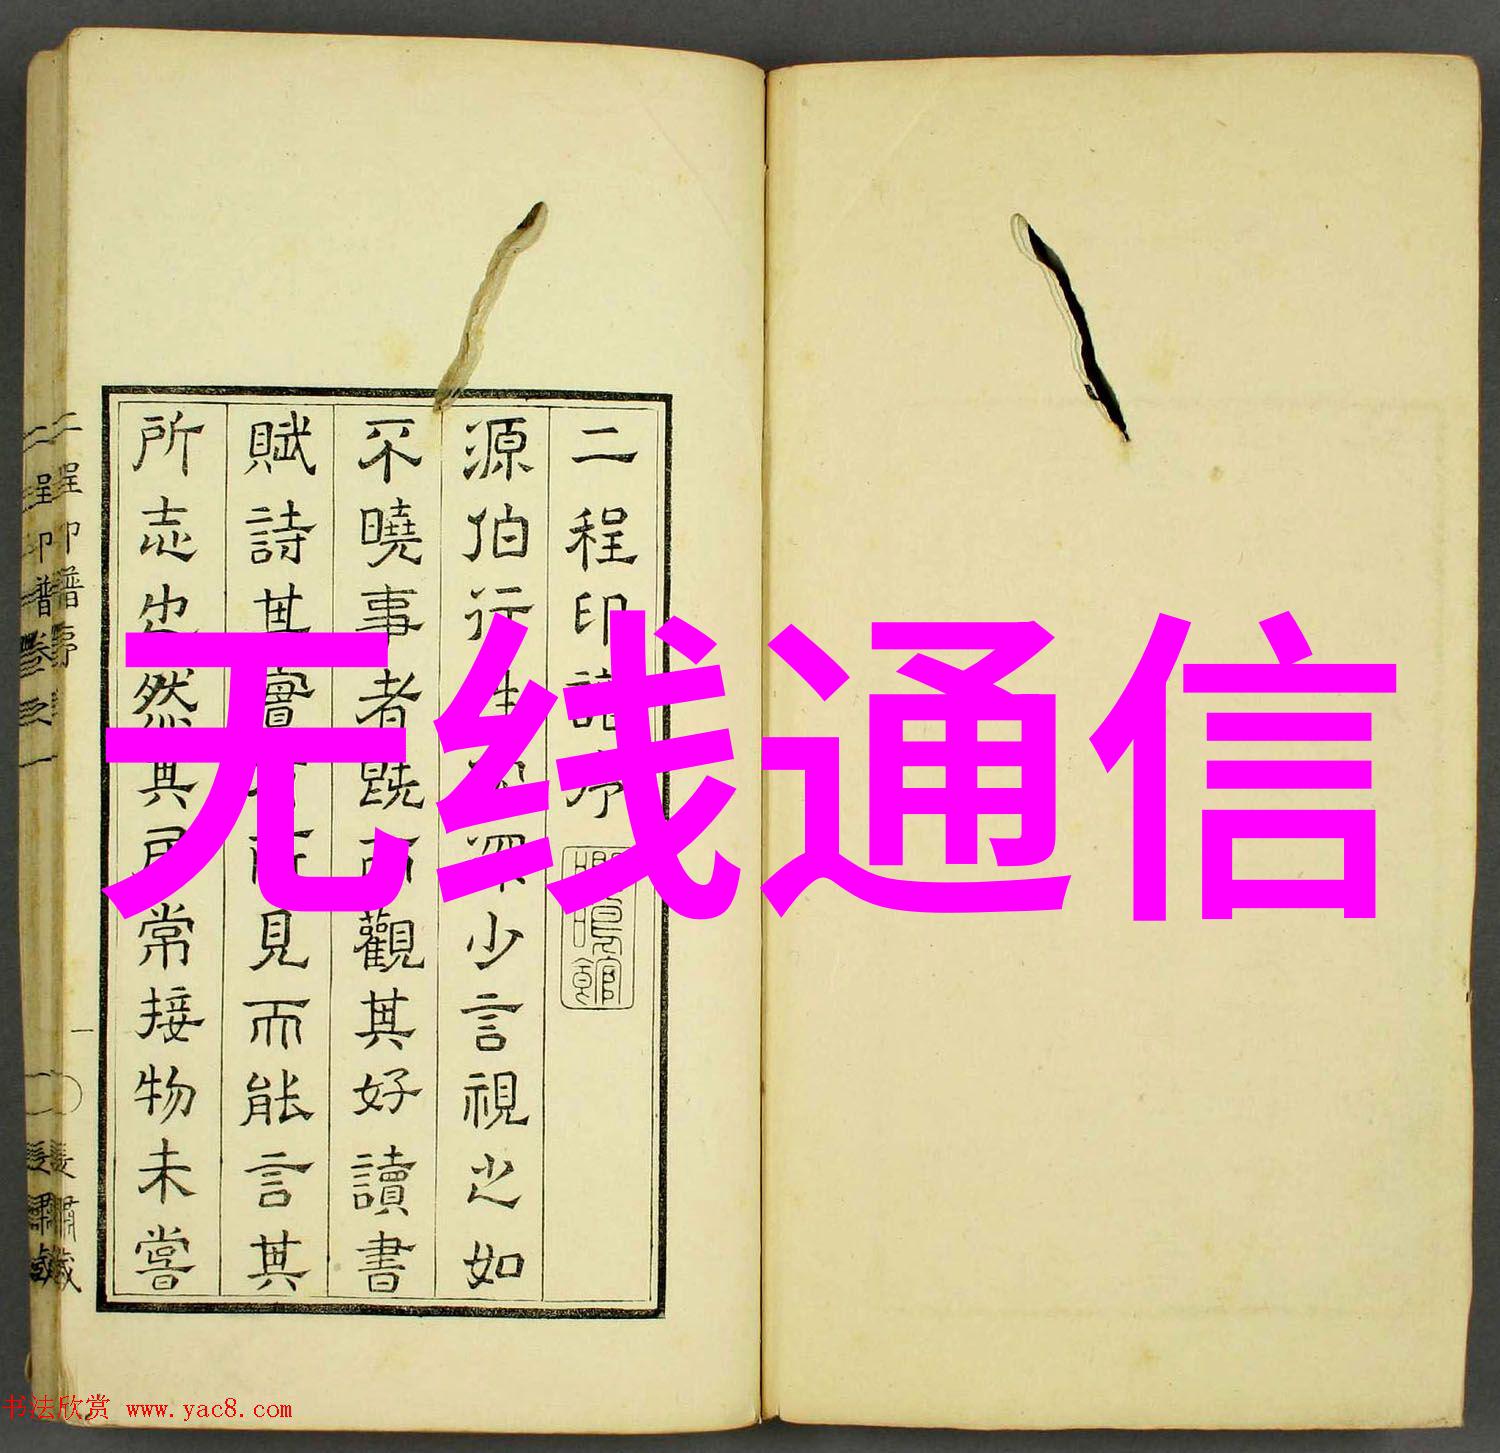 二程印譜序
源伯行少言視之如
不曉事者既而觀其好讀書
賦詩其實有所見而能言其
所志也然其居常接物未嘗
無线通信
二程印譜序
二程印譜卷之一
书法欣赏 www.yac8.com